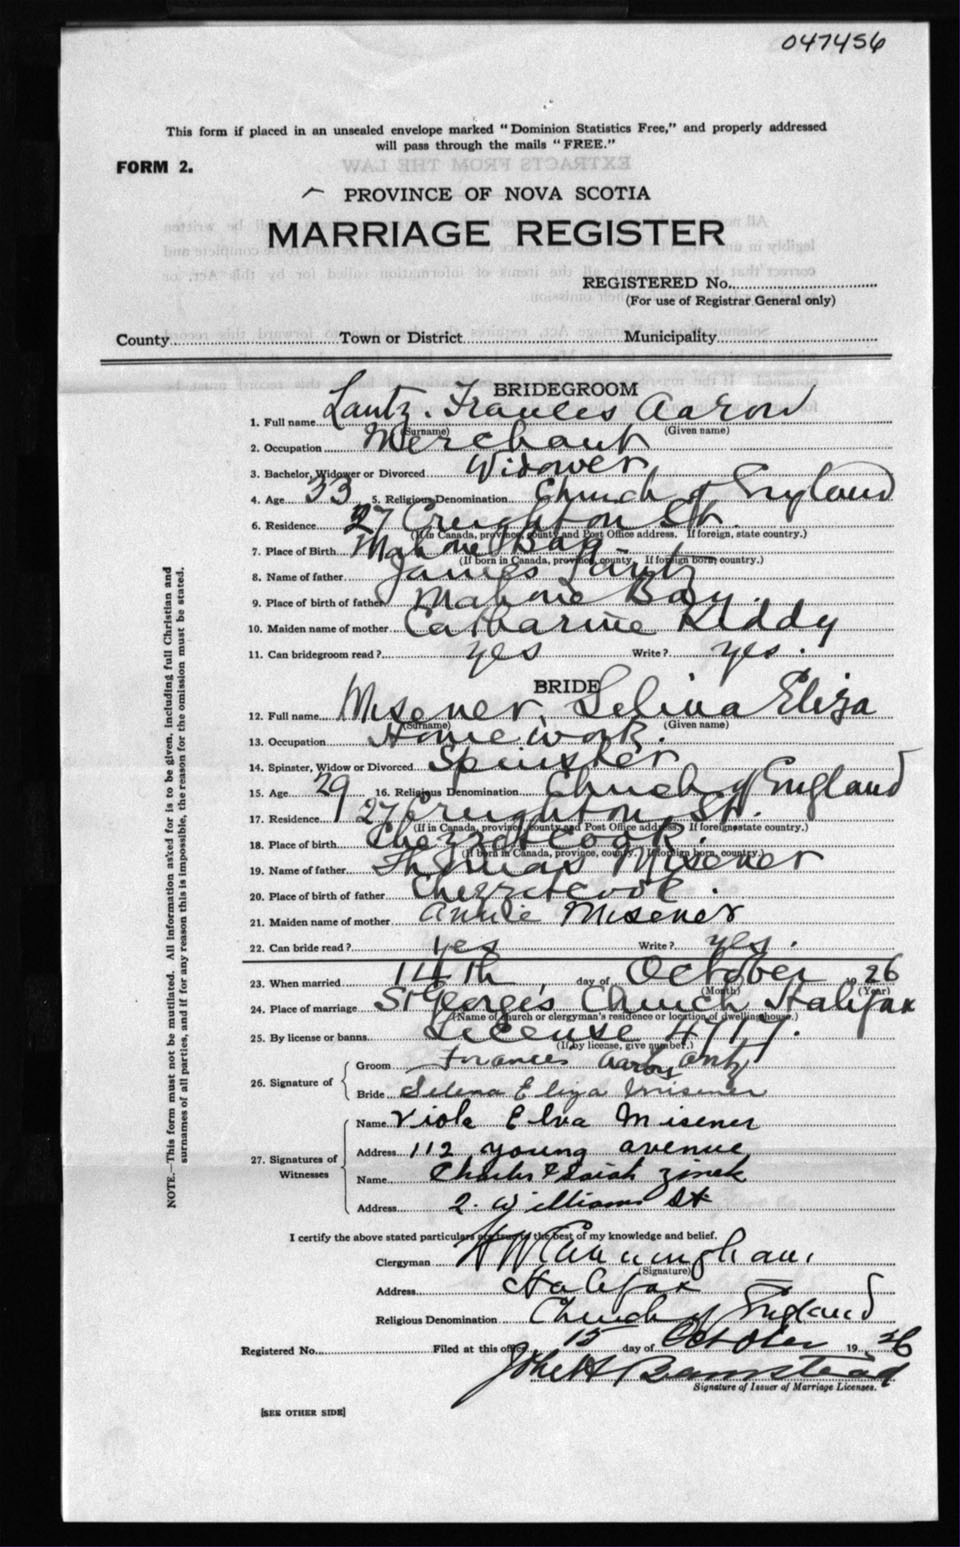 047456
This form if placed in an unsealed envelope marked "Dominion Statistics Free," and properly addressed
will pass through the mails "FREE."
FORM 2.
PROVINCE OF NOVA SCOTIA
MARRIAGE REGISTER
REGISTERED No.
(For use of Registrar General only)
County Town or District Municipality
BRIDEGROOM
1. Full name Lantz. Frances Aaron
(Surname) (Given name)
2. Occupation Merchant
3. Bachelor, Widower or Divorced Widower
4. Age 33 5. Religious Denomination Church of England
6. Residence 27 Creighton St.
(If in Canada, province, county and Post Office address. If foreign, state country.)
7. Place of Birth Mahone Bay
(If born in Canada, province, county. If foreign born, country.)
8. Name of father James Lantz
9. Place of birth of father Mahone Bay.
10. Maiden name of mother Catharine Kiddy
11. Can bridegroom read? yes Write? yes.
BRIDE
12. Full name Misener, Selina Eliza
(Surname) (Given name)
13. Occupation Home work.
14. Spinster, Widow or Divorced Spinster
15. Age 29 16. Religious Denomination Church of England
17. Residence 27 Creighton St.
(If in Canada, province, county and Post Office address. If foreign state country.)
18. Place of birth Chezzetcook.
(If born in Canada, province, county. If foreign born, country.)
19. Name of father Thomas Misener
20. Place of birth of father Chezzetcook.
21. Maiden name of mother Annie Misener
22. Can bride read? yes Write? yes.
23. When married 14th day of October 1926
(Month) (Year)
24. Place of marriage St George's Church Halifax
(Name of church or clergyman's residence or location of dwelling house.)
25. By license or banns License 4717.
(If by license, give number.)
26. Signature of
Groom Frances Aaron Lantz
Bride Selena Eliza Misener
27. Signatures of Witnesses
Name Viola Elva Misener
Address 112 young avenue
Name Charles Isaiah Zinck
Address 2. Williams St
I certify the above stated particulars are true to the best of my knowledge and belief.
Clergyman H W Cunningham.
(Signature)
Address Halifax
Religious Denomination Church of England
Registered No. Filed at this office 15 day of October 1926
John H Barnstead
Signature of Issuer of Marriage Licenses.
[SEE OTHER SIDE]
NOTE.—This form must not be mutilated. All information asked for is to be given, including full Christian and
surnames of all parties, and if for any reason this is impossible, the reason for the omission must be stated.